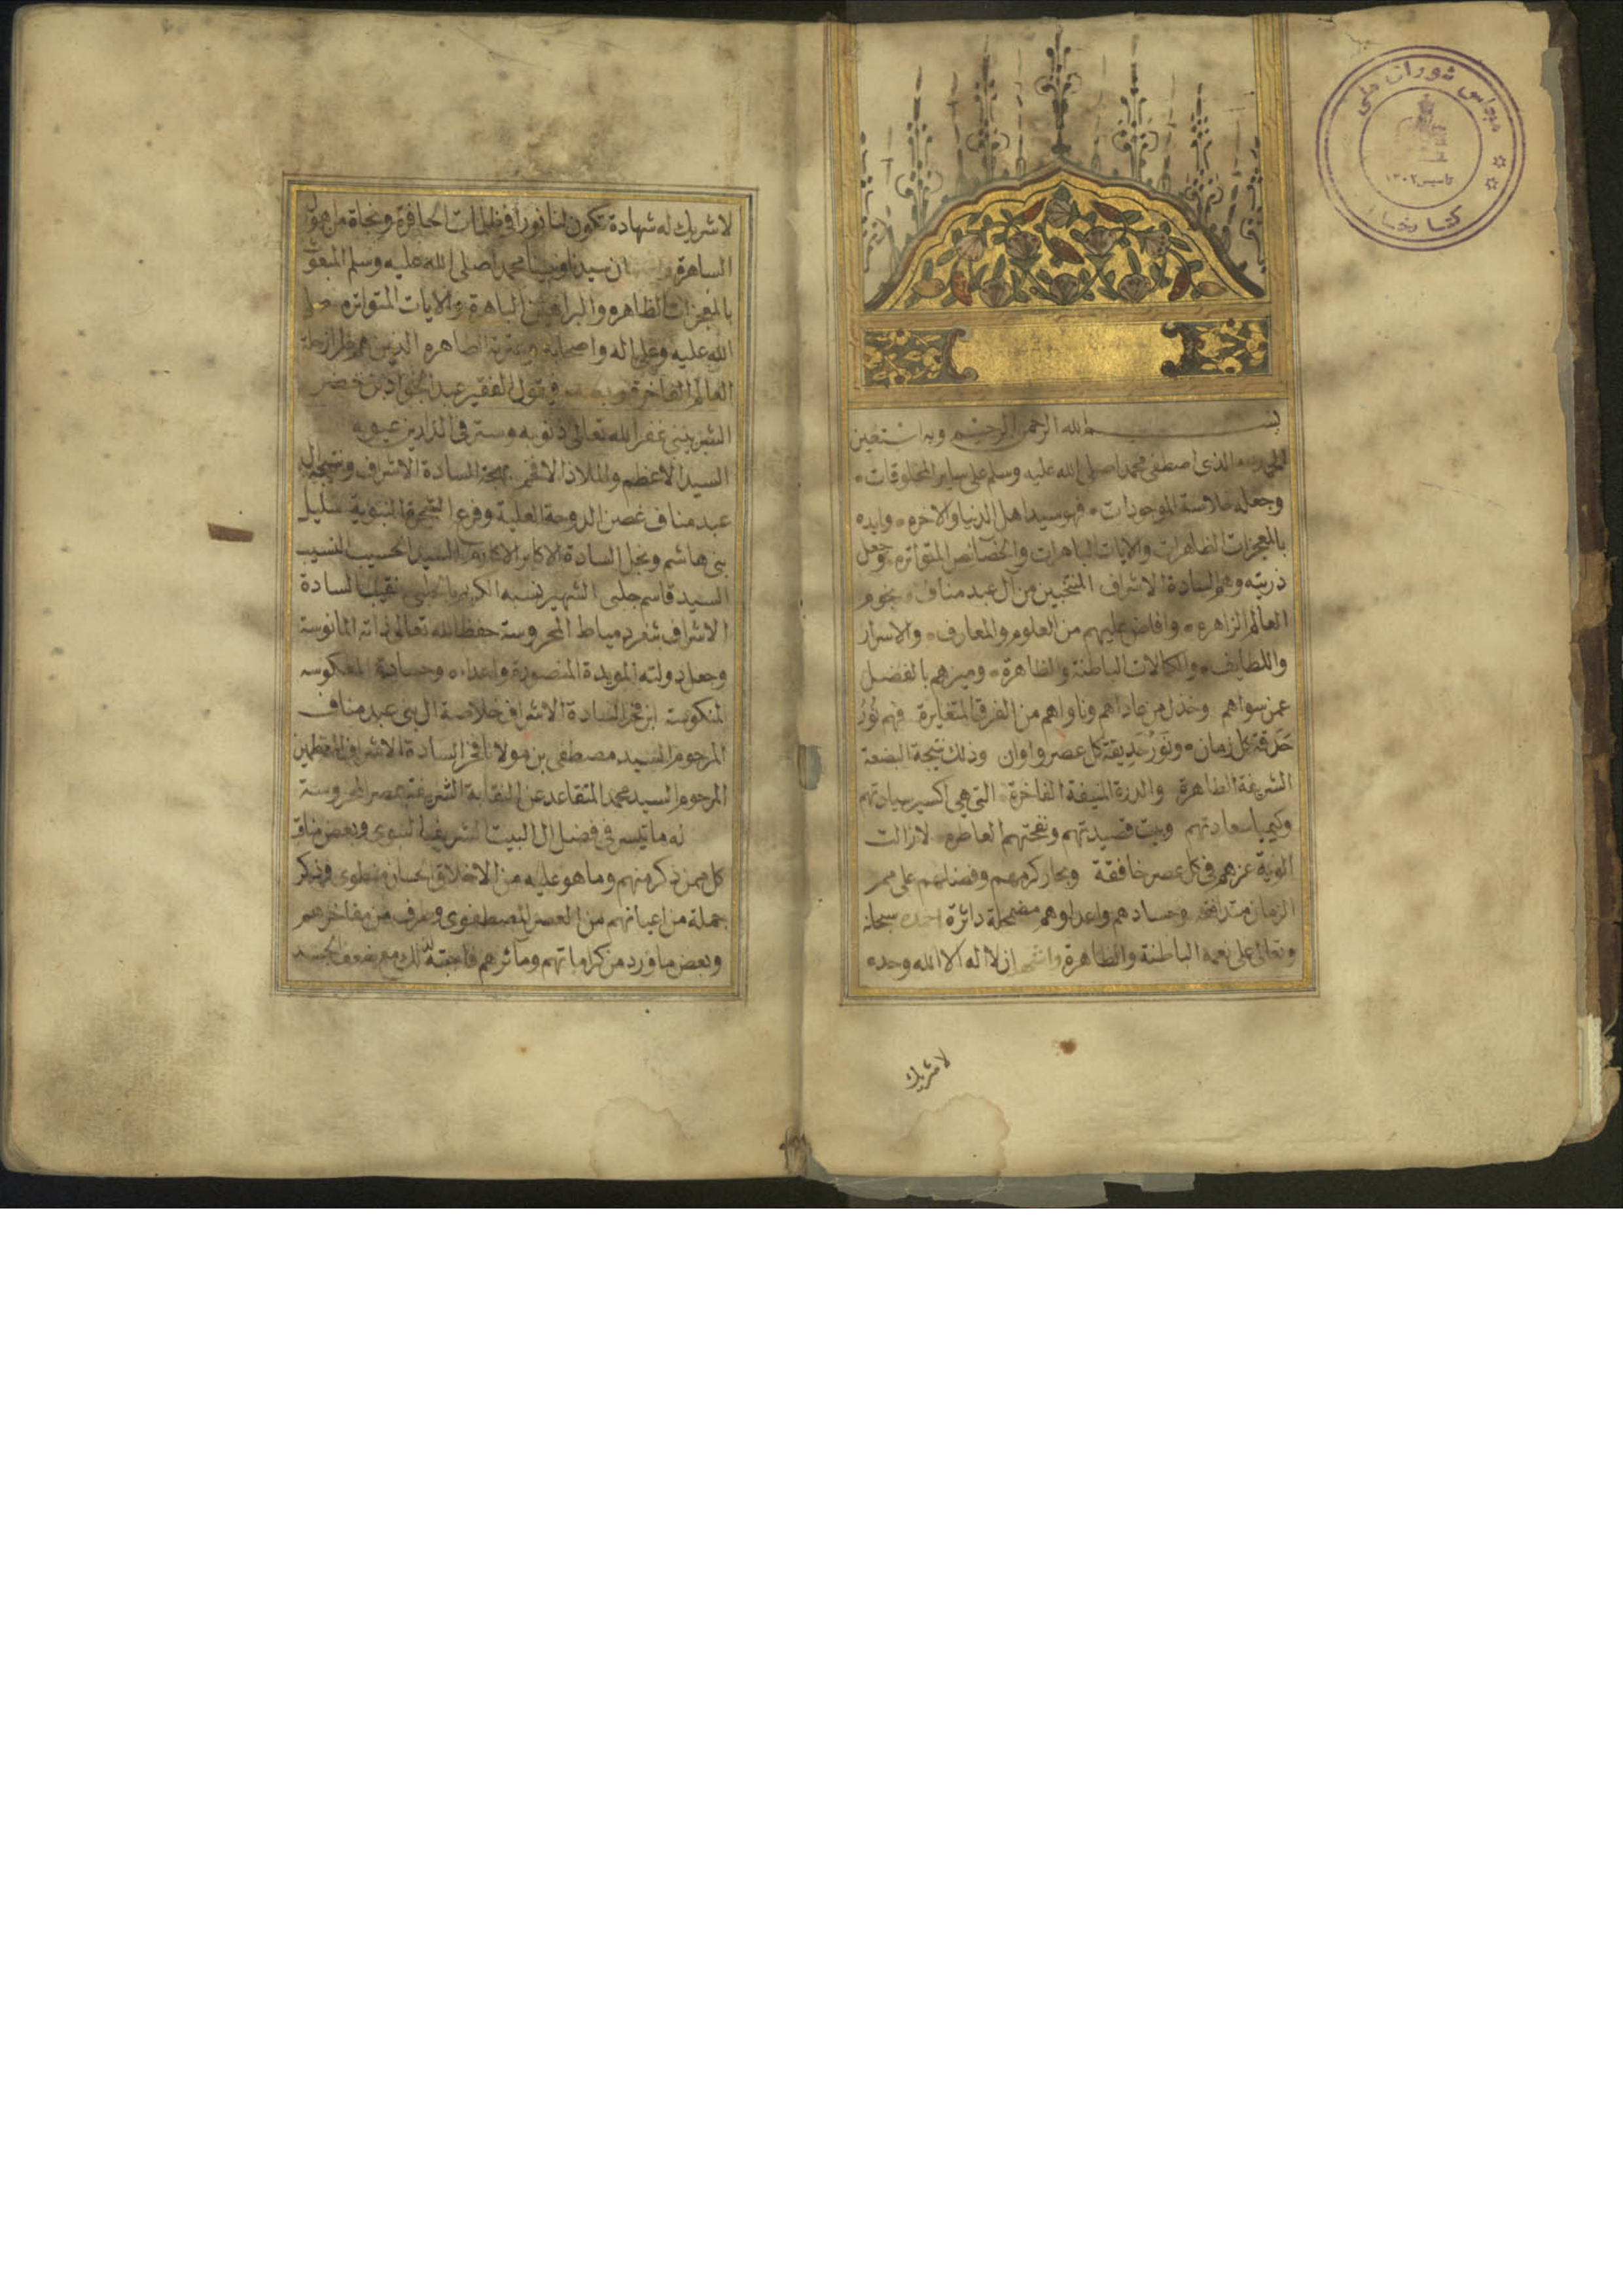 مجلس شورای ملی
تاسیس ۱۳۰۲
کتابخانه
بسم الله الرحمن الرحيم وبه استعين
الحمد لله الذى اصطفى محمدا صلى الله عليه وسلم على ساير المخلوقات
وجعله خلاصة الموجودات فهو سيد اهل الدنيا والاخره وايده
بالمعجزات الظاهرات والايات الباهرات والخصائص المتواتره وجعل
ذريته وهم السادة الاشراف المنتخبين من آل عبد مناف نجوم
العالم الزاهره وافاض عليهم من العلوم والمعارف والاسرار
واللطايف والكمالات الباطنة والظاهرة وميزهم بالفضل
عمن سواهم وخذل من عاداهم وناواهم من الفرق المتغايرة فهم نور
حدقة كل زمان ونور حديقة كل عصر واوان وذلك نتيجة البضعة
الشريفة الطاهرة والدرة المنيفة الفاخرة التى هى اكسير سيادتهم
وكيميا سعادتهم وبيت قصيدتهم ونفحتهم العاطره لازالت
الوية عزهم فى كل عصر خافقة وبحار كرمهم وفضلهم على ممر
الزمان متدافقه وحسادهم واعداوهم مضمحلة دائرة احمده سبحانه
وتعالى على نعمه الباطنة والظاهرة واشهد ان لا اله الا الله وحده
لاشريك
لاشريك له شهادة تكون لنا نورا فى ظلمات الحافرة ونجاة من هول
الساهرة ان سيدنا ونبينا محمدا صلى الله عليه وسلم المبعوث
بالمعجزات الظاهره والبراهين الباهرة والايات المتواتره صلى
الله عليه وعلى اله واصحابه وعترته الطاهره الذين هم طراز حلة
العالم الفاخرة وبعد فيقول الفقير عبد الجواد بن خضر
الشربينى غفر الله تعالى ذنوبه وستر فى الدارين عيوبه
السيد الاعظم والملاذ الافخم بهجة السادة الاشراف ونتيجة ال
عبد مناف غصن الدوحة العلية وفرع الشجرة النبوية سليل
بنى هاشم ونجل السادة الاكابر الاكارم السيد الحسيب النسيب
السيد قاسم جلبى الشهير نسبه الكريم نقيب السادة
الاشراف بثغر دمياط المحروسة حفظ الله تعالى ذاته المانوسة
وجعل دولته المويدة المنصورة واعداه وحساده المعكوسه
المنكوسة ابن فخر السادة الاشراف خلاصة ال بنى عبد مناف
المرحوم السيد مصطفى بن مولانا فخر السادة الاشراف المعظمين
المرحوم السيد محمد المتقاعد عن النقابة الشريفة بمصر المحروسة
له ما تيسر فى فضل ال البيت الشريف النبوى وبعض مناقب
كل ممن ذكر منهم وما هو عليه من الاخلاق الحسان منطوى وذكر
جملة من اعيانهم من العصر المصطفوى وطرف من مفاخرهم
وبعض ما ورد من كراماتهم ومآثرهم فاجبته لذلك مع ضعف الجسد